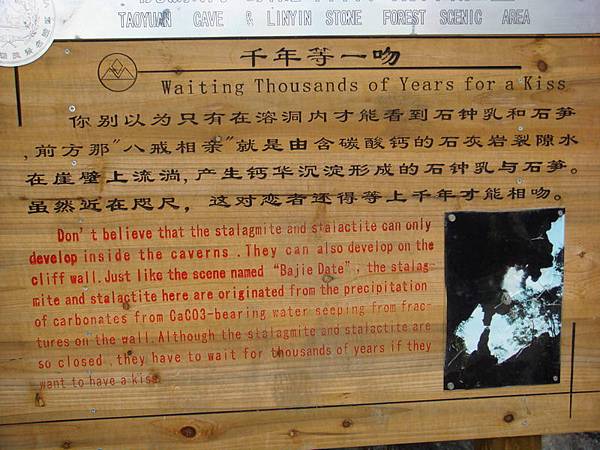 TAOYUAN CAVE & LINYIN STONE FOREST SCENIC AREA
千年等一吻
Waiting Thousands of Years for a Kiss
你别以为只有在溶洞内才能看到石钟乳和石笋
,前方那"八戒相亲"就是由含碳酸钙的石灰岩裂隙水
在崖壁上流淌,产生钙华沉淀形成的石钟乳与石笋。
虽然近在咫尺，这对恋者还得等上千年才能相吻。
Don't believe that the stalagmite and stalactite can only
develop inside the caverns .They can also develop on the
cliff wall.Just like the scene named “Bajie Date”, the stalag-
mite and stalactite here are originated from the precipitation
of carbonates from CaCO3-bearing water seeping from frac-
tures on the wall.Although the stalagmite and stalactite are
so closed ,they have to wait for thousands of years if they
want to have a kiss